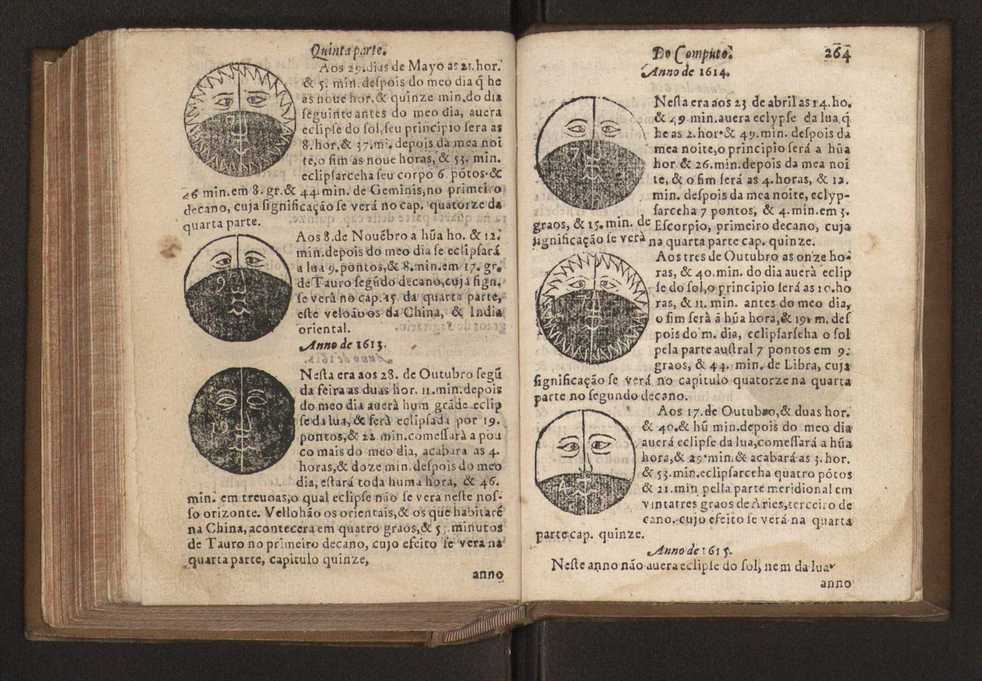 Quinta parte.
Aos 29. dias de Mayo as 21. hor.
& 5. min. despois do meo dia q̃ he
as noue hor. & quinze min. do dia
seguinte antes do meo dia, auera
eclipse do sol, seu principio sera as
8. hor. & 37. mi. depois da mea noi
te, o fim as noue horas, & 53. min.
eclipsarceha seu corpo 6 põtos &
46 min. em 8. gr. & 44. min. de Geminis, no primeiro
decano, cuja significação se verá no cap. quatorze da
quarta parte.
Aos 8. de Nouẽbro a hũa ho. & 12.
min. depois do meo dia se eclipsará
a lua 9. pontos, & 8. min. em 17. gr.
de Tauro segũdo decano, cuja sign.
se verà no cap. 15 da quarta parte,
este veloão os da China, & India
oriental.
Anno de 1613.
Nesta era aos 28. de Outubro segũ
da feira as duas hor. 11. min. depois
do meo dia auerà hum grãde eclip
se da lua, & serà eclipsada por 19.
pontos, & 22 min. comessarà a pou
co mais do meo dia, acabara as 4.
horas, & doze min. despois do meo
dia, estará toda huma hora, & 46.
min. em treuoas, o qual eclipse não se vera neste nos-
so orizonte. Vellohão os orientais, & os que habitarẽ
na China, acontecera em quatro graos, & 5 minutos
de Tauro no primeiro decano, cujo efeito se vera na
quarta parte, capitulo quinze,
anno
Do Computo.
264
Anno de 1614.
Nesta era aos 23 de abril as 14. ho.
& 49 min. auera eclypse da lua q̃
he as 2. hor. & 49. min. despois da
mea noite, o principio será a hũa
hor & 26. min. depois da mea noi
te, & o fim será as 4. horas, & 12.
min. despois da mea noite, eclyp-
sarceha 7 pontos, & 4. min. em 3.
graos, & 15. min. de Escorpio, primeiro decano, cuja
significação se verà na quarta parte cap. quinze.
Aos tres de Outubro as onze ho-
ras, & 40. min. do dia auerà eclip
se do sol, o principio será as 10. ho
ras, & 11. min. antes do meo dia,
o fim serà á hũa hora, & 19. m. des
pois do m. dia, eclipsarseha o sol
pela parte austral 7 pontos em 9.
graos, & 44. min. de Libra, cuja
significação se verá no capitulo quatorze na quarta
parte no segundo decano.
Aos 17. de Outubro, & duas hor.
& 40. & hũ min. depois do meo dia
auerá eclipse da lua, comessará a hũa
hora, & 29. min. & acabará as 3. hor.
& 53. min. eclipsarceha quatro põtos
& 21. min. pella parte meridional em
vinta tres graos de Aries, terceiro de
cano. cujo efeito se verá na quarta
parte cap. quinze.
Anno de 1615.
Neste anno não auera eclipse do sol, nem da lua
anno